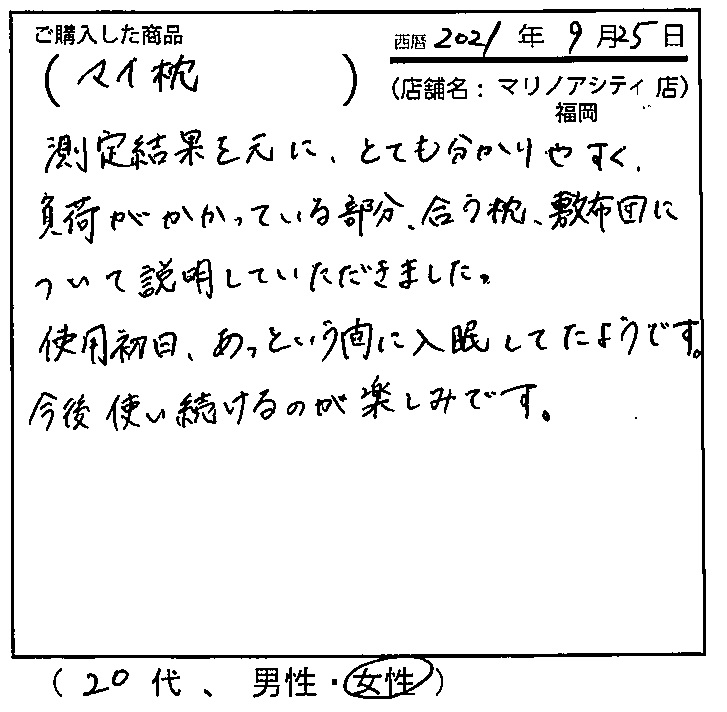 ご購入した商品
西暦 2021 年 9 月25 日
(マイ枕)
(店舗名：マリノアシティ 店)
福岡
測定結果を元に、とても分かりやすく、
負荷がかかっている部分、合う枕、敷布団に
ついて説明していただきました。
使用初日、あっという間に入眠してたようです。
今後使い続けるのが楽しみです。
(20 代、男性・女性)